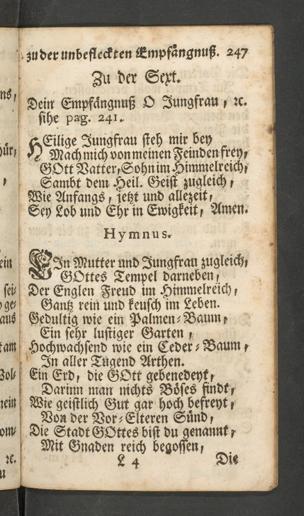 zu der unbefleckten Empfängnuß. 247
Zu der Sext.
Dein Empfängnuß O Jungfrau, ꝛc.
sihe pag. 241.
HEilige Jungfrau steh mir bey
Mach mich von meinen Feinden frey,
GOtt Vatter, Sohn im Himmelreich,
Sambt dem Heil. Geist zugleich,
Wie Anfangs, jetzt und allezeit,
Sey Lob und Ehr in Ewigkeit, Amen.
Hymnus.
EIn Mutter und Jungfrau zugleich,
GOttes Tempel darneben,
Der Englen Freud im Himmelreich,
Gantz rein und keusch im Leben.
Gedultig wie ein Palmen-Baum,
Ein sehr lustiger Garten,
Hochwachsend wie ein Ceder-Baum,
In aller Tugend Arthen.
Ein Erd, die GOtt gebenedeyt,
Darinn man nichts Böses findt,
Wie geistlich Gut gar hoch befreyt,
Von der Vor-Elteren Sünd,
Die Stadt GOttes bist du genannt,
Mit Gnaden reich begossen,
L 4 Die